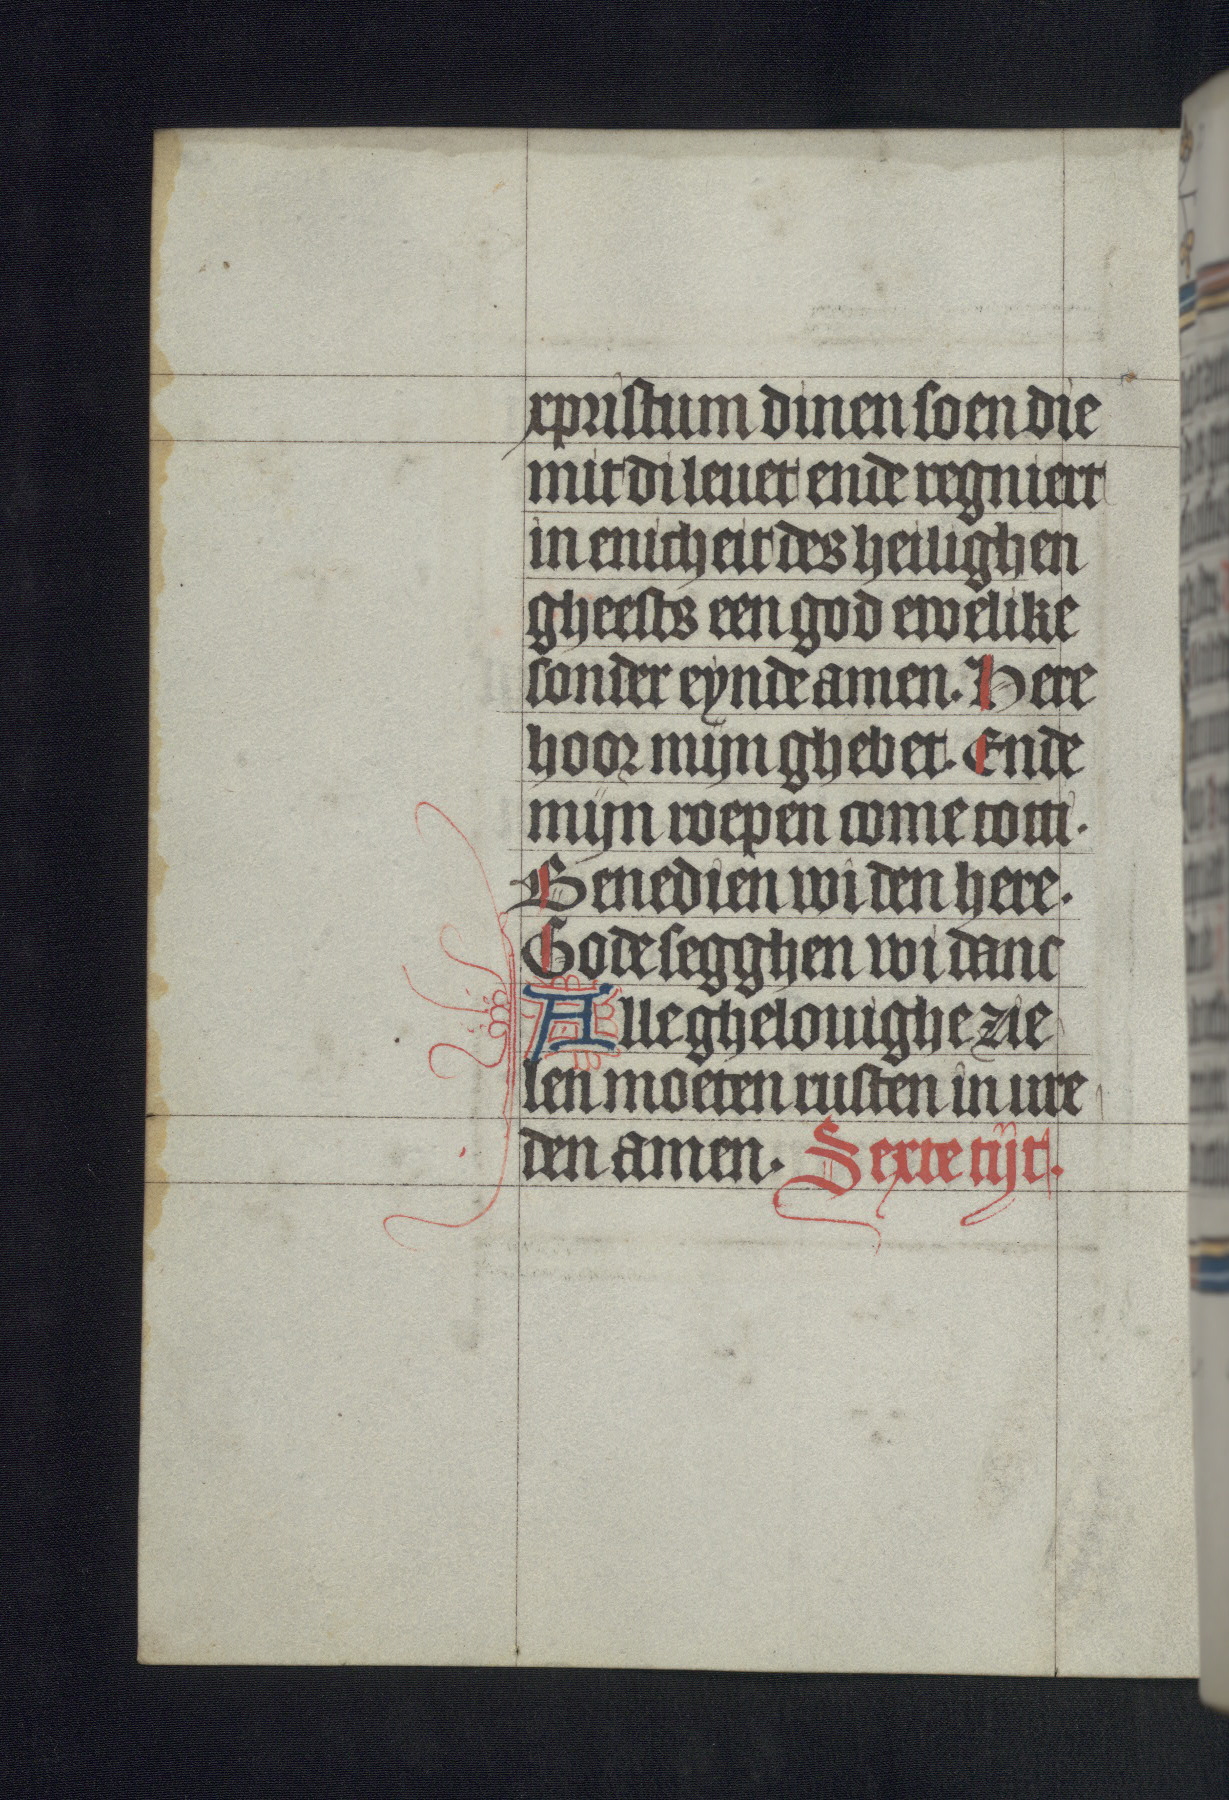 xpristum dinen soen die
mit di leuet ende regniert
in enicheit des heilighen
gheests een god ewelike
sonder eynde amen. Here
hoor mijn ghebet. Ende
mijn roepen come totti.
Benedien wi den here.
Gode segghen wi danc
Alle ghelouighe zie
len moeten rusten in vre
den amen. Sexte tijt.